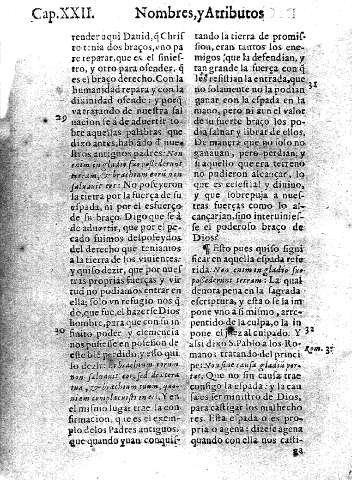 Cap. XXII. Nombres, y Atributos
tender aqui Dauid, q̃ Chris
to tenia dos braços, vno pa
re reparar, que es el sinies-
tro, y otro para ofender, q̃
es el braço derecho. Con la
humanidad repara y con la
diuinidad ofende: y porq̃
va tratando de nuestra sal
uaciõ se à de aduertir so
bre aquellas palabras que
dixo antes, hablãdo d̃ nue
stros antiguos padres: Non
enim in gladio suo possederunt
terram, & brachium eorũ non
saluauit eos: No posseyeron
la tierra por la fuerça de su
espada, ni por el esfuerço
de su braço. Digo que se à
de aduertir, que por el pe
cado fuimos desposseydos
del derecho que teniamos
a la tierra de los viuientes:
y quiso dezir, que por nues
tras propias fuerças y vir
tud no podiamos entrar en
ella; solo vn refugio nos q̃
dò, que fue, el hazerse Dios
hombre, para que con su in
finito poder y clemencia
nos pusiesse en possesion de
este biẽ perdido, y esto qui
so dezir:
saluauit eos, sed dextera
tua, & brachium tuum, quo-
niam complacuisti in eis. Y en
el mismo lugar trae la con
firmacion, que es el exem-
plo de los Padres antiguos,
que quando yuan conquis-
29
30
tando la tierra de promis-
sion, eran tantos los ene-
migos que la defendian, y
tan grande la fuerça con q̃
les resistian la entrada, que
no solamente no la podian
ganar con la espada en la
mano, pero ni aun el valor
de su fuerte braço los po
dia saluar y librar de ellos.
De manera que no solo no
ganauan, pero perdian; y
si aquello que era terreno
no pudieron alcançar, lo
que es celestial y diuino,
y que sobrepuja a nues-
tras fuerças como lo al-
cançarian, sino interuinies-
se el poderoso braço de
Dios?
¶ Esto pues quiso signi
ficar en aquella espada re
ferida. Non enim in gladio suo
possederunt terram: La qual
denota pena en la sagrada
escriptura, y esta o se la im
pone vno a si mismo, arre-
pentido de la culpa, o la im
pone el juez al culpado. Y
assi dixo S. Pablo a los Ro-
manos tratando del princi
pe: Non sine causa gladiũ por-
tat. Que no sin causa trae
consigo la espada: y la cau
sa es ser ministro de Dios,
para castigar los malhecho
res. Esta espada o es pro-
pria o agena: dizese agena
quando con ella nos casti-
ga
31
32
Rom. 13.